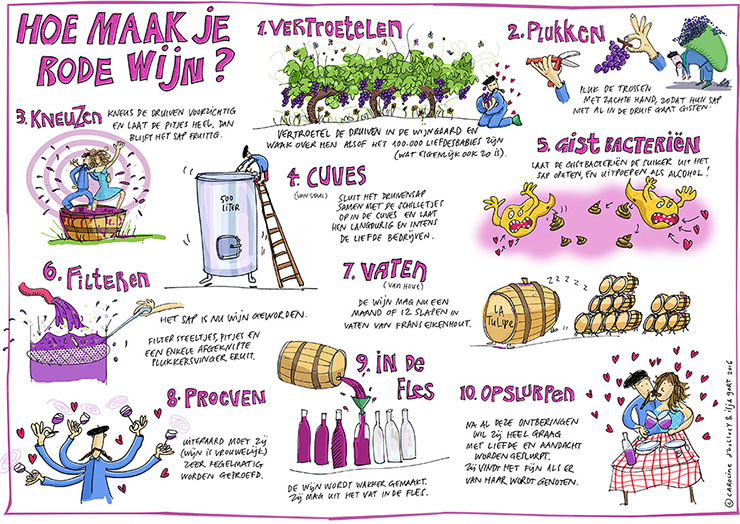 HOE MAAK JE
RODE WIJN?
1. VERTROETELEN
VERTROETEL DE DRUIVEN IN DE WIJNGAARD EN
WAAK OVER HEN ALSOF HET 100.000 LIEFDESBABIES ZIJN
(WAT EIGENLIJK OOK ZO IS).
2. PLUKKEN
PLUK DE TROSSEN
MET ZACHTE HAND, ZODAT HUN SAP
NIET AL IN DE DRUIF GAAT GISTEN.
3. KNEUZEN
KNEUS DE DRUIVEN VOORZICHTIG
EN LAAT DE PITJES HEEL, DAN
BLIJFT HET SAP FRUITIG.
500
LITER
4. CUVES
(VAN STAAL)
SLUIT HET DRUIVENSAP
SAMEN MET DE SCHILLETJES
OP IN DE CUVES EN LAAT
HEN LANGDURIG EN INTENS
DE LIEFDE BEDRIJVEN.
5. GIST BACTERIËN
LAAT DE GISTBACTERIËN DE SUIKER UIT HET
SAP OPETEN, EN UITPOEPEN ALS ALCOHOL!
6. FILTEREN
HET SAP IS NU WIJN GEWORDEN.
FILTER STEELTJES, PITJES EN
EEN ENKELE AFGEKNIPTE
PLUKKERSVINGER ERUIT.
7. VATEN
(VAN HOUT)
DE WIJN MAG NU EEN
MAAND OF 12 SLAPEN IN
VATEN VAN FRANS EIKENHOUT.
LA
TULIPE
ZZZZZ
8. PROEVEN
UITERAARD MOET ZIJ
(WIJN IS VROUWELIJK)
ZEER REGELMATIG
WORDEN GEPROEFD.
9. IN DE
FLES
DE WIJN WORDT WAKKER GEMAAKT.
ZIJ MAG UIT HET VAT IN DE FLES.
10. OPSLURPEN
NA AL DEZE ONTBERINGEN
WIL ZIJ HEEL GRAAG
MET LIEFDE EN AANDACHT
WORDEN GESLURPT.
ZIJ VINDT HET FIJN ALS ER
VAN HAAR WORDT GENOTEN.
© CAROLINE & ILJA GORT 2016